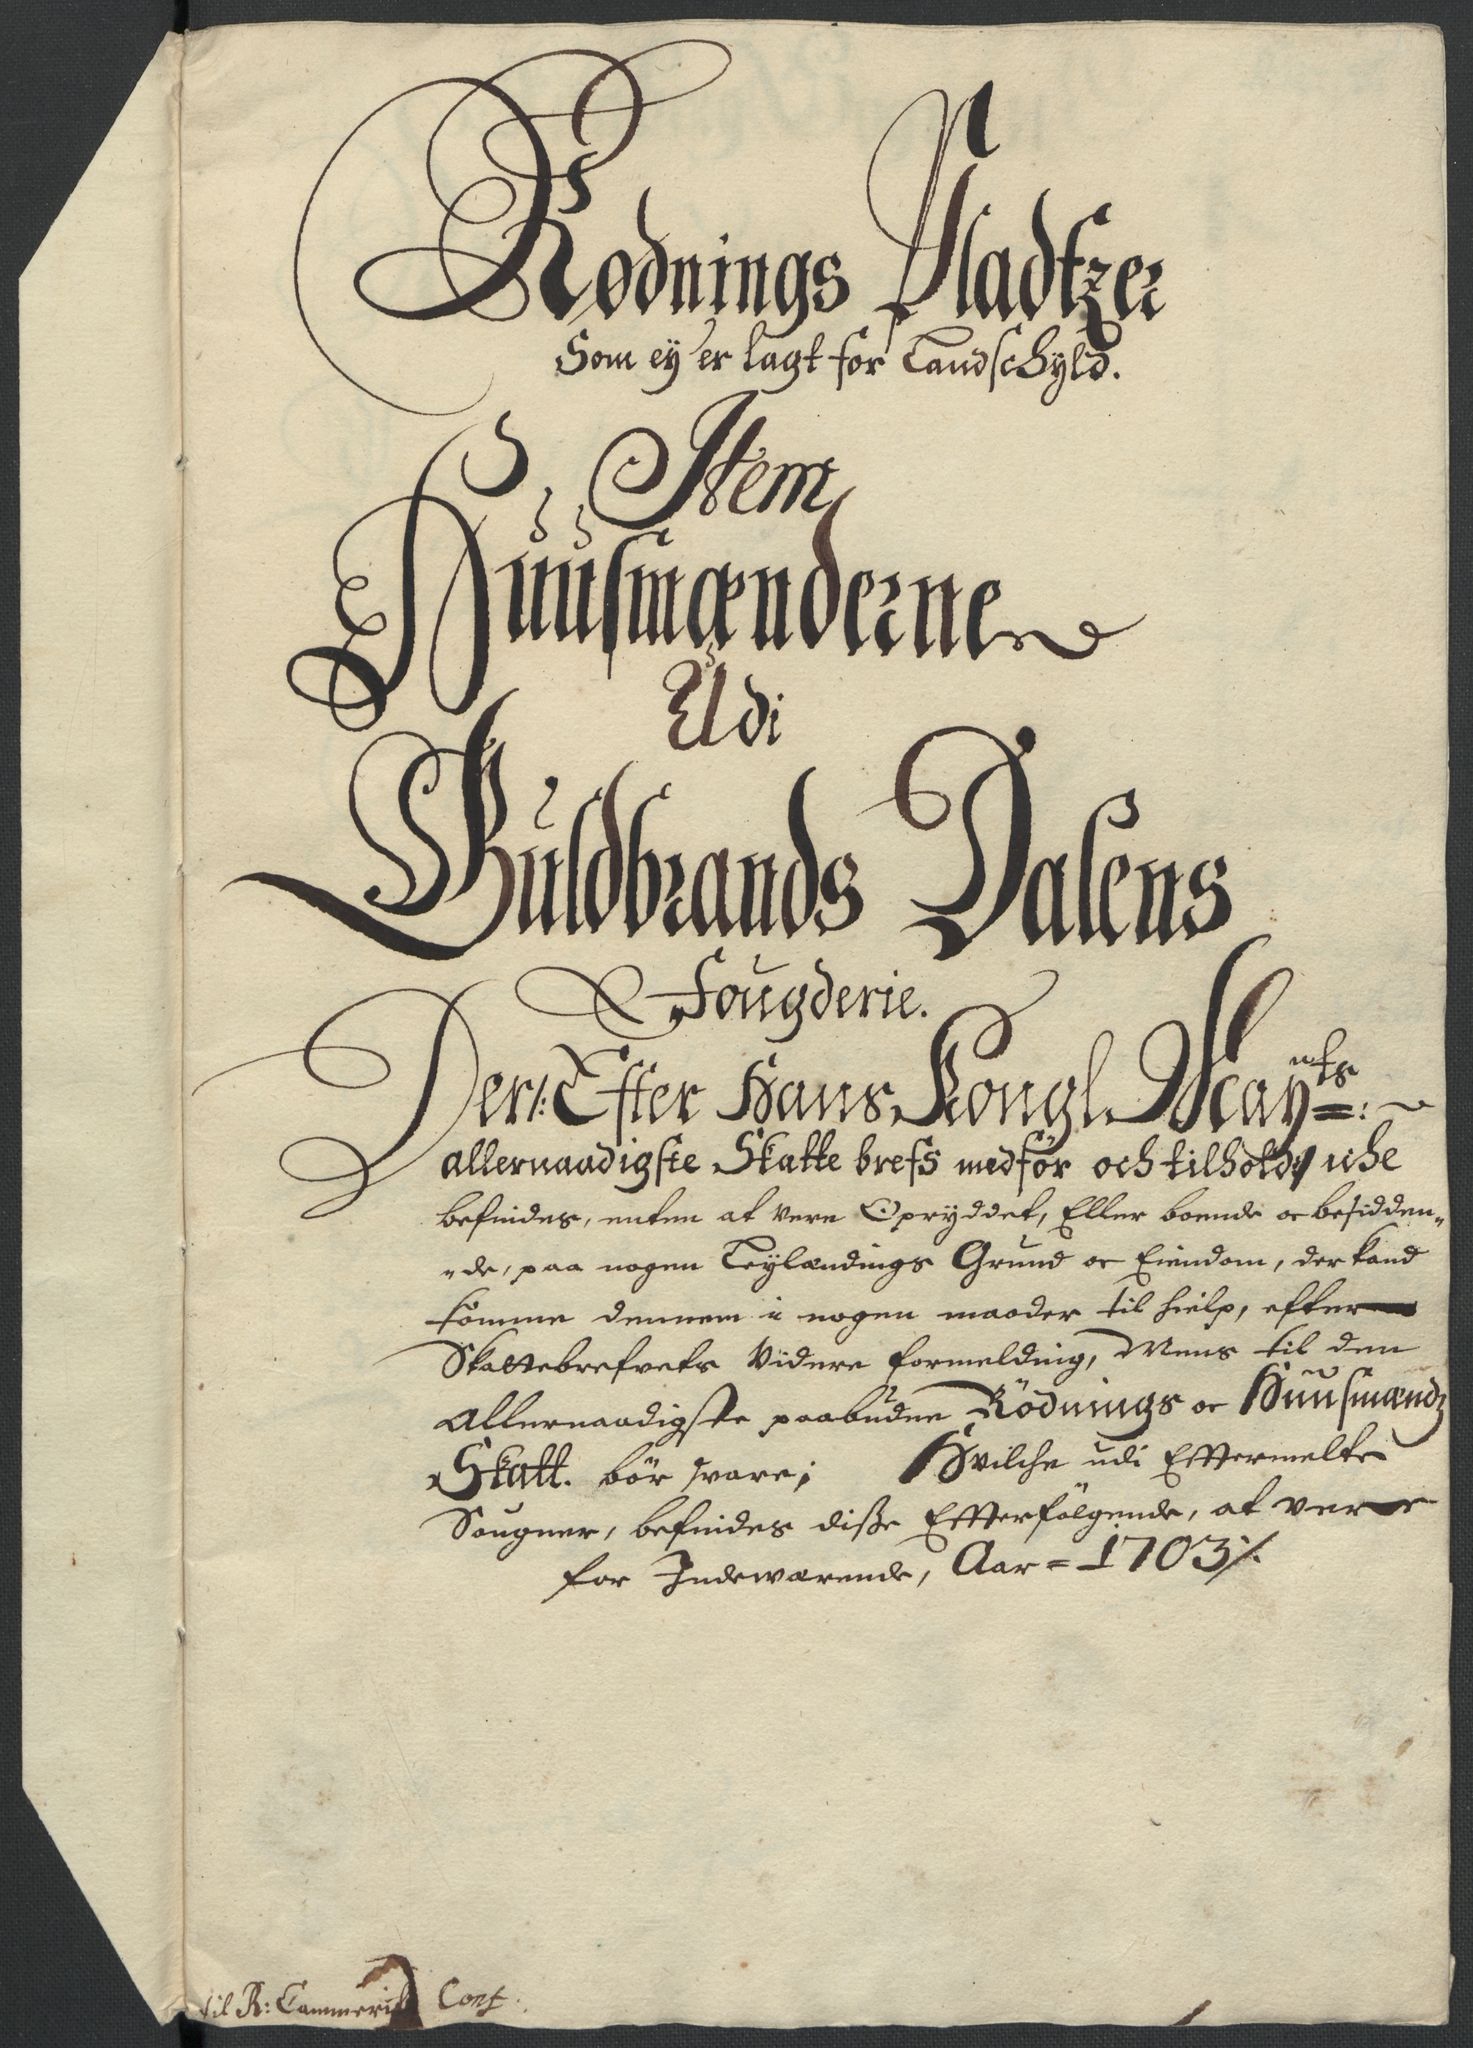 Rødnings Pladtzer
Som ey er lagt for Landschyld.
Item
Huusmænderne
Udi
Guldbrands Dalens
Fougderie.
Der, Efter Hans Kongl. May:ts
allernaadigste Skatte brefs medfør och tilhold, iche
befindes, enten at vere Opryddet, Eller boende oc besidden„
„de, paa nogen Leylændings Grund oc Eiendom, der kand
komme dennem i nogen maader til hielp, efter
Skattebrefvets Videre formelding, Mens til den
Allernaadigste paabudne Rödnings oc Huusmænds
Skatt. bör svare; Hvilche udi Effttermelte
Sougner, befindes disse Effterfölgende, at vere
for Indeværende, Aar = 1703 ⁒
til R: Cammerit Cont.